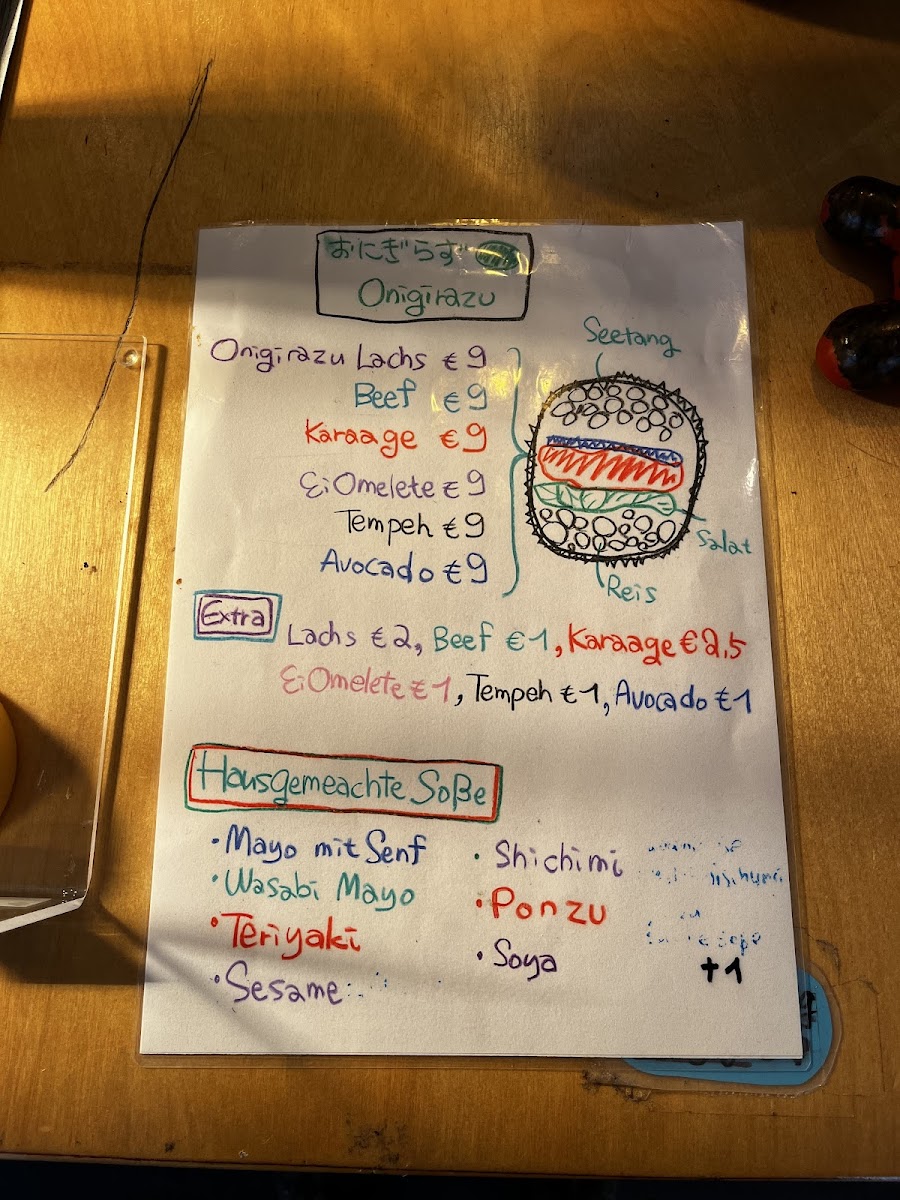 おにぎらず
Onigirazu
Onigirazu Lachs €9
Beef €9
Karaage €9
Ei Omelete €9
Tempeh €9
Avocado €9
Seetang
Salat
Reis
Extra
Lachs €2, Beef €1, Karaage €2,5
Ei Omelete €1, Tempeh €1, Avocado €1
Hausgemeachte Soße
· Mayo mit Senf
· Wasabi Mayo
· Teriyaki
· Sesame
· Shichimi
· Ponzu
· Soya
+1